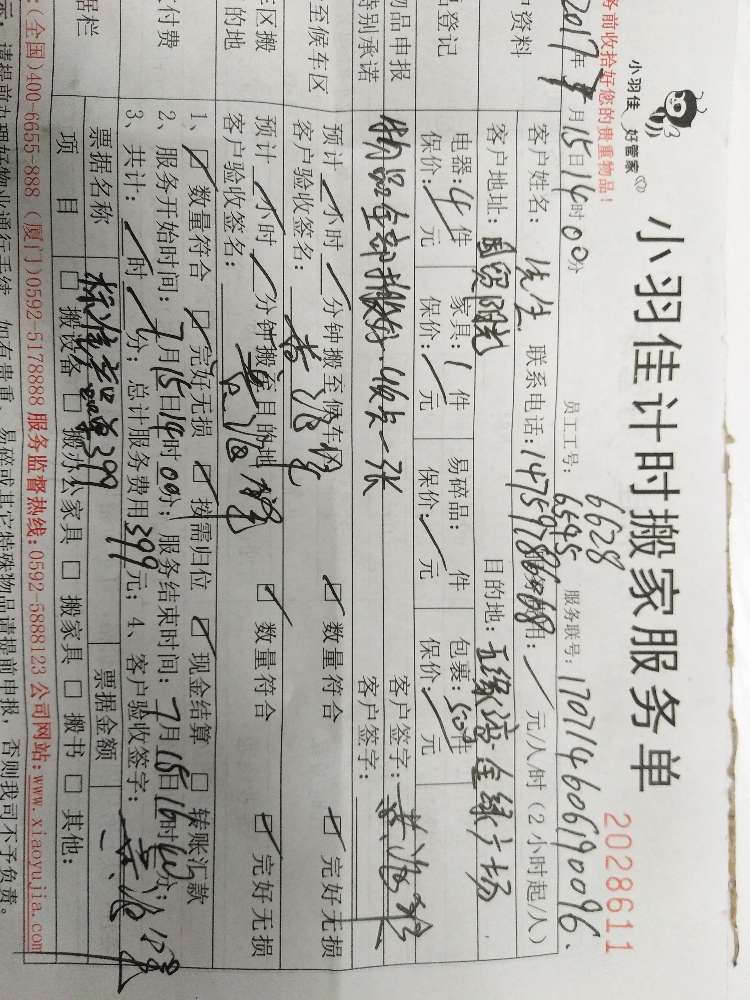 务前收拾好您的贵重物品!
小羽佳 好管家
小羽佳计时搬家服务单
2028611
2017年7月15日14时00分
员工工号: 6628
6595
服务联号: 170714606190096.
户资料
客户姓名: 先生 联系电话: 14759786068 用: 元/人/时 (2小时起/人)
客户地址: 国贸阳光 目的地: 五缘湾金绿广场
品登记
电器: 4件 家具: 1件 易碎品: 件 包裹: 50件
保价: 元 保价: 元 保价: 元 保价: 元
物品申报
特别承诺
物品全部搬好.收式一张
客户签字:
客户签字:
至候车区
预计 小时 分钟搬至候车区 数量符合 完好无损
客户验收签名:
区搬
的地
预计 小时 分钟搬至目的地 数量符合 完好无损
客户验收签名:
付费
1、 数量符合 完好无损 按需归位 现金结算 转账汇款
2、服务开始时间: 7月15日14时00分; 服务结束时间: 7月15日16时00分;
3、共计: 时 分; 总计服务费用399元; 4、客户验收签字:
据栏
票据名称 标准套餐单399 票据金额
项目 搬设备 搬办公家具 搬家具 搬书 其他:
:(全国)400-6655-888 (厦门)0592-5178888 服务监督热线:0592-5888123 公司网站:www.xiaoyujia.com
示: 请提前办理好物业通行手续, 如有贵重、易碎或其它特殊物品请提前申报, 否则我司不予负责。